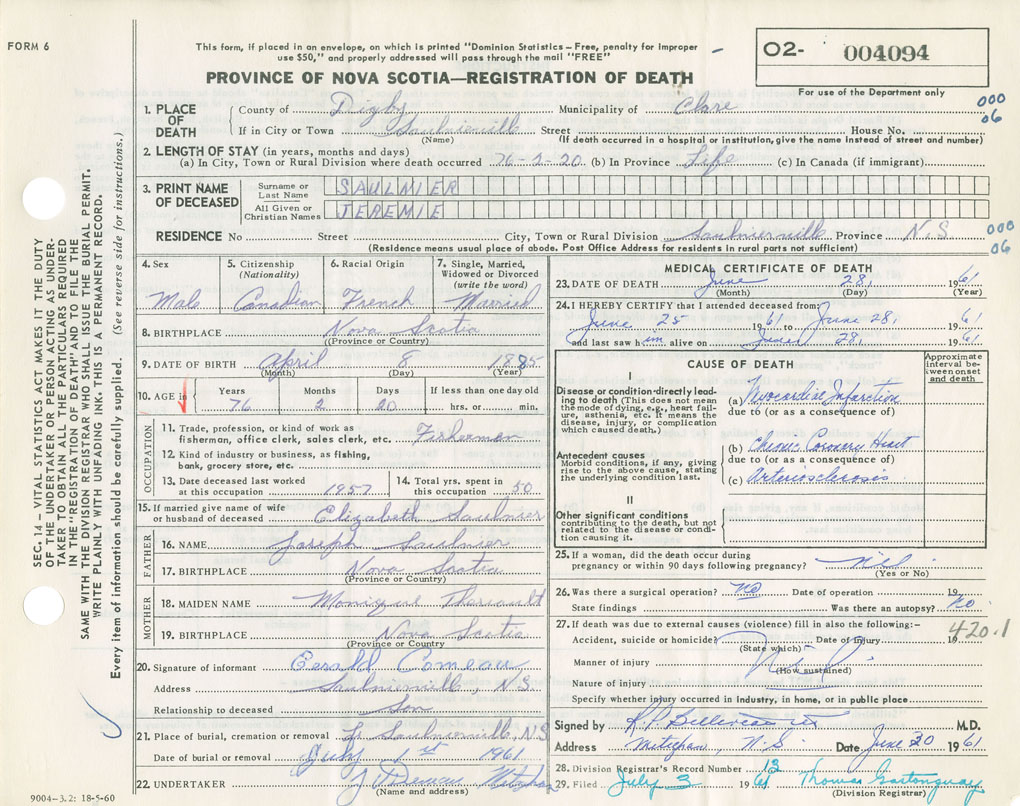 FORM 6
This form, if placed in an envelope, on which is printed "Dominion Statistics – Free, penalty for improper
use $50," and properly addressed will pass through the mail "FREE"
O2- 004094
PROVINCE OF NOVA SCOTIA—REGISTRATION OF DEATH
For use of the Department only
SEC. 14 – VITAL STATISTICS ACT MAKES IT THE DUTY
OF THE UNDERTAKER OR PERSON ACTING AS UNDER-
TAKER TO OBTAIN ALL THE PARTICULARS REQUIRED
IN THE "REGISTRATION OF DEATH" AND TO FILE THE
SAME WITH THE DIVISION REGISTRAR WHO SHALL ISSUE THE BURIAL PERMIT.
WRITE PLAINLY WITH UNFADING INK. THIS IS A PERMANENT RECORD.
Every item of information should be carefully supplied. (See reverse side for instructions.)
1. PLACE OF DEATH County of Digby Municipality of Clare 000 06
If in City or Town Saulnierville Street House No.
(Name) (If death occurred in a hospital or institution, give the name instead of street and number)
2. LENGTH OF STAY (in years, months and days)
(a) In City, Town or Rural Division where death occurred 76-2-20 (b) In Province Life (c) In Canada (if immigrant)
3. PRINT NAME OF DECEASED Surname or Last Name SAULNIER
All Given or Christian Names JEREMIE
RESIDENCE No Street City, Town or Rural Division Saulnierville Province N.S 000 06
(Residence means usual place of abode. Post Office Address for residents in rural parts not sufficient)
4. Sex Male
5. Citizenship (Nationality) Canadian
6. Racial Origin French
7. Single, Married, Widowed or Divorced (write the word) Married
8. BIRTHPLACE Nova Scotia
(Province or Country)
9. DATE OF BIRTH April 8 1885
(Month) (Day) (Year)
10. AGE in Years Months Days If less than one day old
76 2 20 hrs. or min.
OCCUPATION
11. Trade, profession, or kind of work as
fisherman, office clerk, sales clerk, etc. Fisherman
12. Kind of industry or business, as fishing,
bank, grocery store, etc.
13. Date deceased last worked at this occupation 1957
14. Total yrs. spent in this occupation 50
15. If married give name of wife
or husband of deceased Elizabeth Saulnier
FATHER
16. NAME Joseph Saulnier
17. BIRTHPLACE Nova Scotia
(Province or Country)
MOTHER
18. MAIDEN NAME Monique Theriault
19. BIRTHPLACE Nova Scotia
(Province or Country
20. Signature of informant Gerald Comeau
Address Saulnierville, N.S
Relationship to deceased Son
21. Place of burial, cremation or removal Saulnierville, N.S
Date of burial or removal July 1st 1961
22. UNDERTAKER
(Name and address)
9004–3.2: 18-5-60
MEDICAL CERTIFICATE OF DEATH
23. DATE OF DEATH June 28, 1961
(Month) (Day) (Year)
24. I HEREBY CERTIFY that I attended deceased from:
June 25 1961 to June 28, 61
and last saw him alive on June 28, 1961
CAUSE OF DEATH
Approximate interval between onset and death
I
Disease or condition directly leading to death (This does not mean the mode of dying, e.g., heart failure, asthenia, etc. It means the disease, injury, or complication which caused death.)
(a) Myocardial Infarction
due to (or as a consequence of)
Antecedent causes
Morbid conditions, if any, giving rise to the above cause, stating the underlying condition last.
(b) Chronic Coronary Heart
due to (or as a consequence of)
(c) Arteriosclerosis
II
Other significant conditions
contributing to the death, but not related to the disease or condition causing it.
25. If a woman, did the death occur during
pregnancy or within 90 days following pregnancy? Nil
(Yes or No)
26. Was there a surgical operation? No Date of operation 19
State findings Was there an autopsy? No
27. If death was due to external causes (violence) fill in also the following:– 420.1
Accident, suicide or homicide? Date of injury 19
(State which)
Manner of injury Nil
(How sustained)
Nature of injury
Specify whether injury occurred in industry, in home, or in public place
Signed by M.D.
Address Meteghan, N.S Date June 30 1961
28. Division Registrar's Record Number 13
29. Filed July 3 1961 Thomas Gastonguay
(Division Registrar)